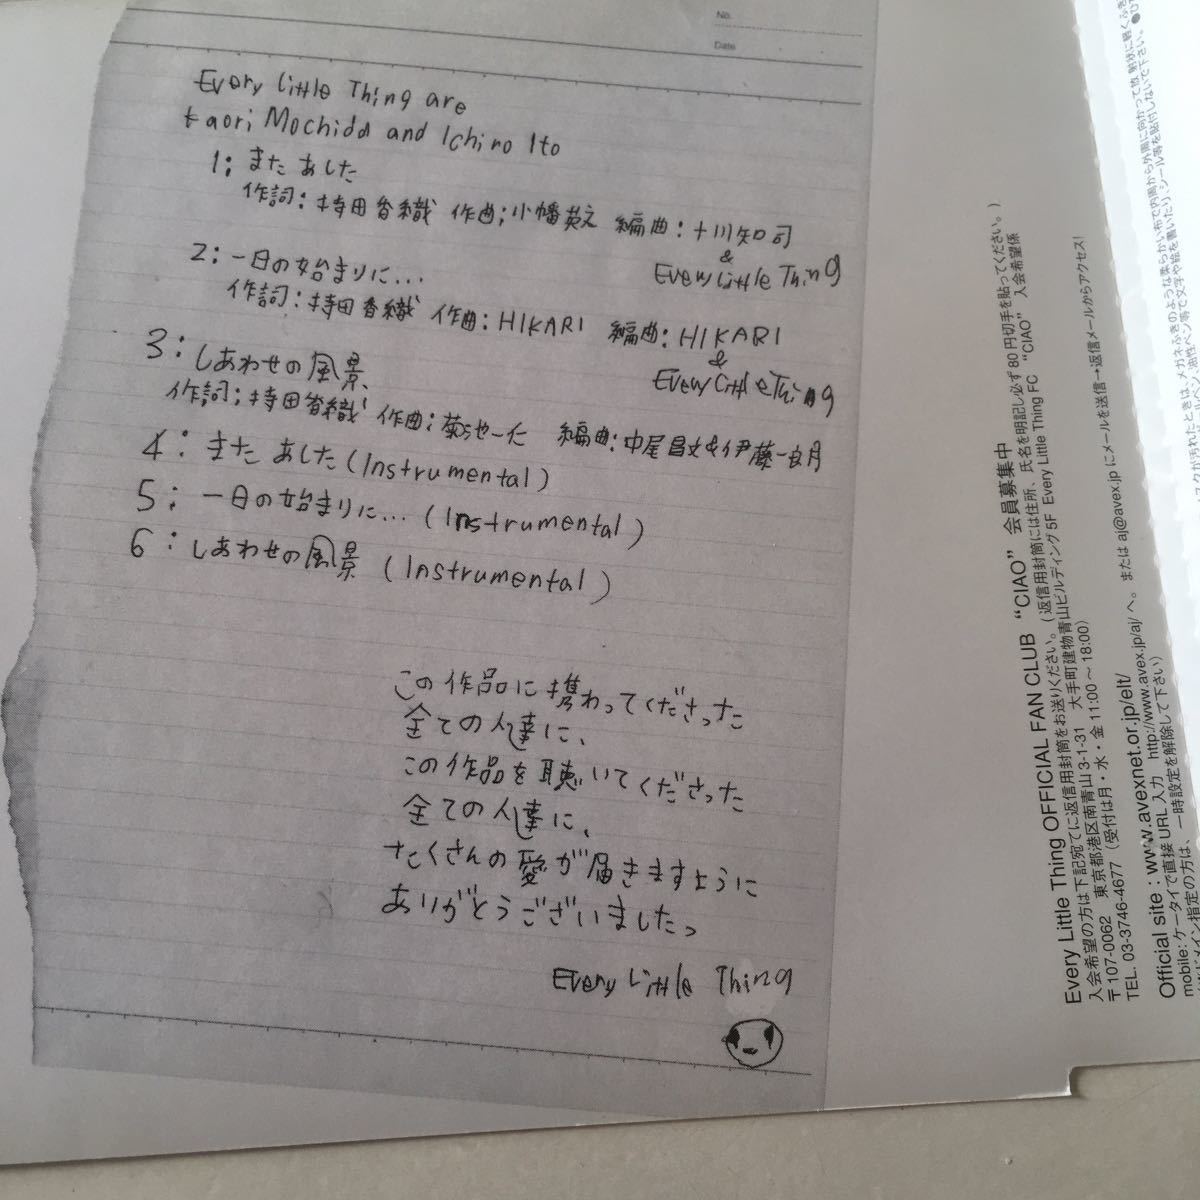 No.
Date
Every Little Thing are
Kaori Mochida and Ichiro Ito
1: また あした
作詞:持田香織 作曲:小幡英之 編曲:十川知司
&
Every Little Thing
2: 一日の始まりに...
作詞:持田香織 作曲:HIKARI 編曲:HIKARI
&
Every Little Thing
3: しあわせの風景
作詞:持田香織 作曲:菊池一仁 編曲:中尾昌文&伊藤一朗
4: また あした (Instrumental)
5: 一日の始まりに... (Instrumental)
6: しあわせの風景 (Instrumental)
この作品に携わってくださった
全ての人達に、
この作品を聴いてくださった
全ての人達に、
たくさんの愛が届きますように
ありがとうございましたっ
Every Little Thing
Every Little Thing OFFICIAL FAN CLUB “CIAO” 会員募集中
入会希望の方は下記宛てに返信用封筒をお送りください。(返信用封筒には住所、氏名を明記し必ず80円切手を貼ってください。)
〒107-0062 東京都港区南青山3-1-31 大手町建物青山ビルディング5F Every Little Thing FC “CIAO” 入会希望係
TEL. 03-3746-4677 (受付は月・水・金 11:00~18:00)
Official site : www.avexnet.or.jp/elt/
mobile: ケータイで直接URL入力 http://www.avex.jp/aj/ へ。 または aj@avex.jp にメールを送信→返信メールからアクセス!
ドメイン指定の方は、一時設定を解除して下さい)